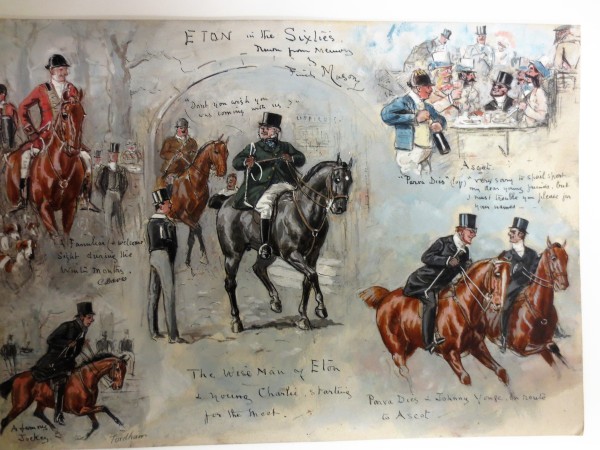 ETON in the Sixties.
Drawn from Memory
by
Finch Mason
"Don't you wish you
was coming with us?"
Ascot.
"Parva Dies" (log) Very sorry to spoil sport
my dear young friends, but
I must trouble you please for
your names
A Familiar & welcome
sight during the
Winter Months.
The Wise Man of Eton
& young Charlie starting
for the meet.
Parva Dies & Johnny Yonge, en route
to Ascot
A famous
Jockey
Fordham